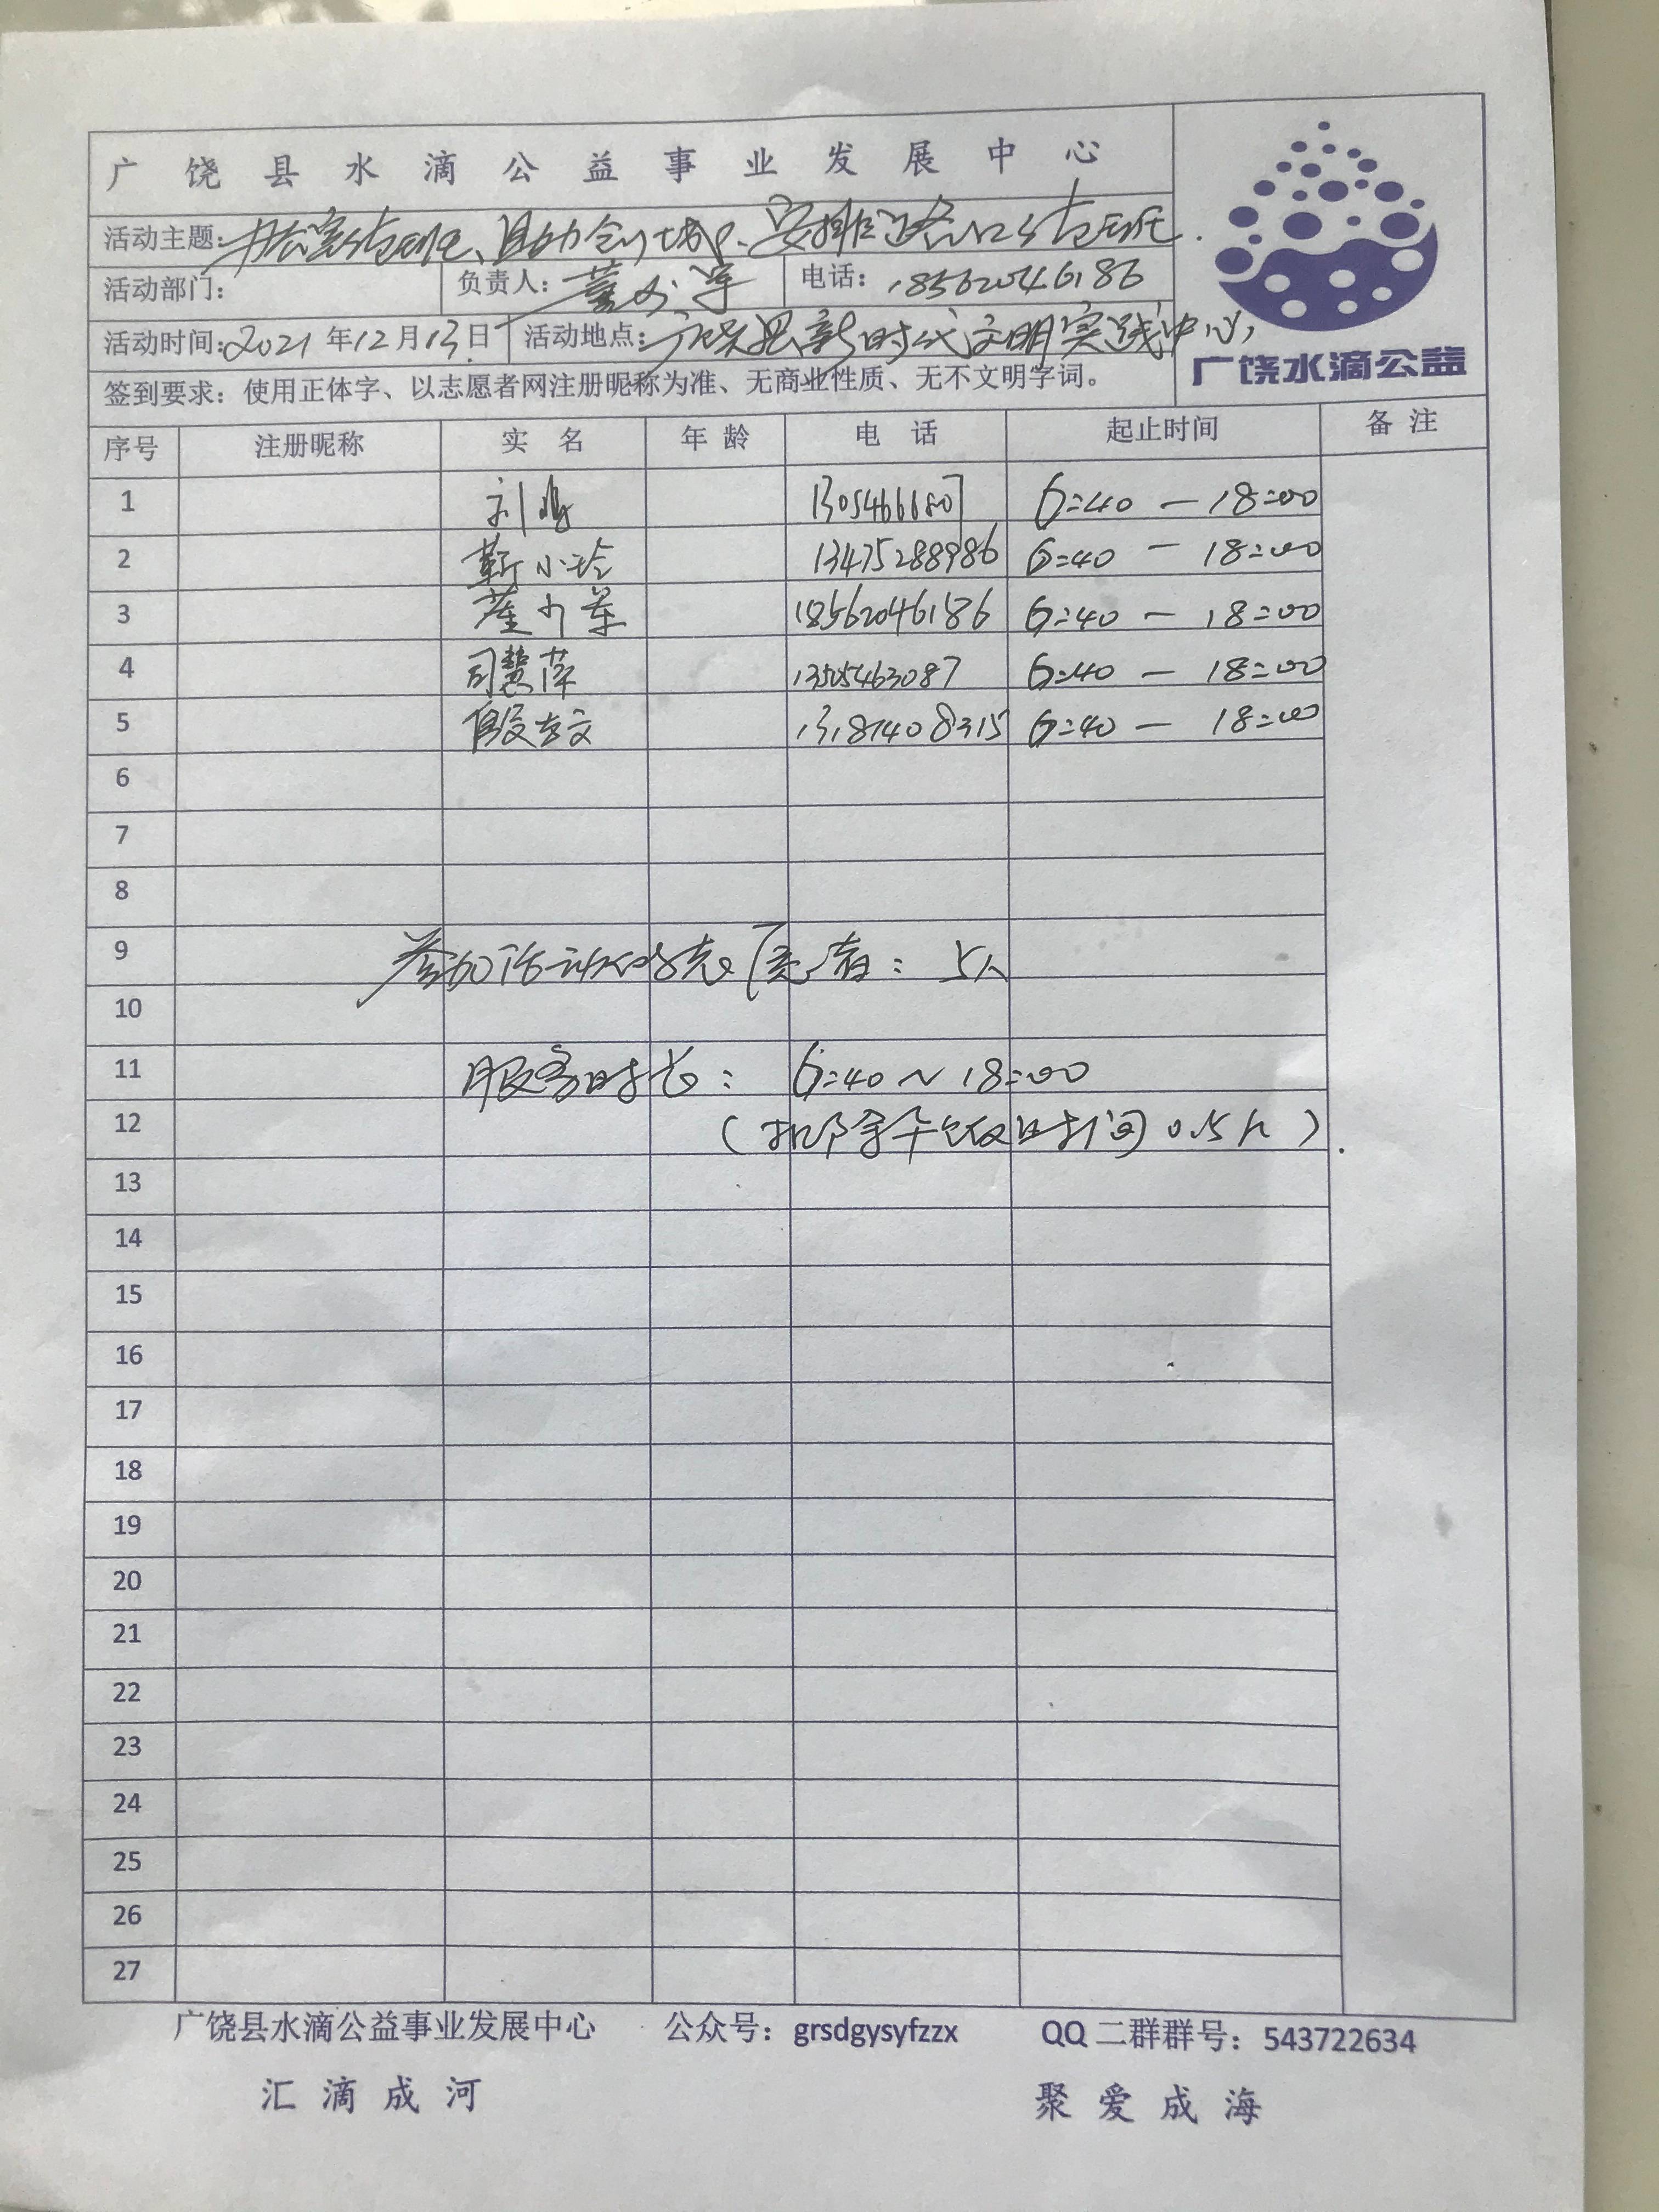 广饶县水滴公益事业发展中心
活动主题: 、助力创城、安排路口值班.
活动部门: 负责人: 董 电话: 18562046186
活动时间: 2021 年 12 月 13 日 活动地点: 广饶县新时代文明实践中心
广饶水滴公益
签到要求：使用正体字、以志愿者网注册昵称为准、无商业性质、无不文明字词。
序号 注册昵称 实 名 年 龄 电 话 起止时间 备 注
1 刘 6:40 — 18:00
2 靳小玲 13475288986 6:40 — 18:00
3 董 18562046186 6:40 — 18:00
4 司慧萍 13505463087 6:40 — 18:00
5 文 6:40 — 18:00
6
7
8
9 参加活动的志愿者: 5人
10
11 服务时长: 6:40～18:00
12 (扣除午饭时间 0.5h).
13
14
15
16
17
18
19
20
21
22
23
24
25
26
27
广饶县水滴公益事业发展中心 公众号：grsdgysyfzzx QQ 二群群号：543722634
汇滴成河 聚爱成海